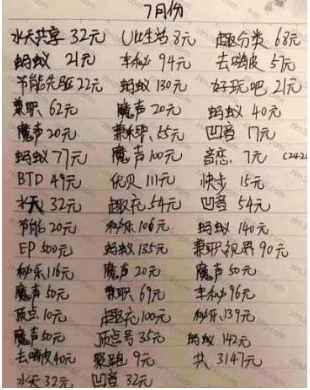 7月份
水天共享 32元 U比生活 8元 趣分类 68元
蚂蚁 21元 丰秘 94元 去嗨皮 57元
节能先驱 22元 蚂蚁 130元 好玩吧 21元
兼职 62元 魔声 20元 蚂蚁 40元
魔声 20元 兼职 55元 凹音 17元
蚂蚁 77元 魔声 100元 音恋 7元 (242
BTD 49元 优贝 111元 快步 15元
水天 32元 趣充 54元 凹音 54元
节能 20元 秘乐 106元 蚂蚁 140元
EP 500元 蚂蚁 135元 兼职视界 90元
秘乐 116元 魔声 20元 魔声 50元
魔声 50元 兼职 69元 丰秘 96元
顶点 10元 趣充 100元 秘乐 139元
魔声 50元 顶点号 35元 蚂蚁 142元
去嗨皮 40元 聚跑 9元 共 3147元
水天 32元 凹音 32元